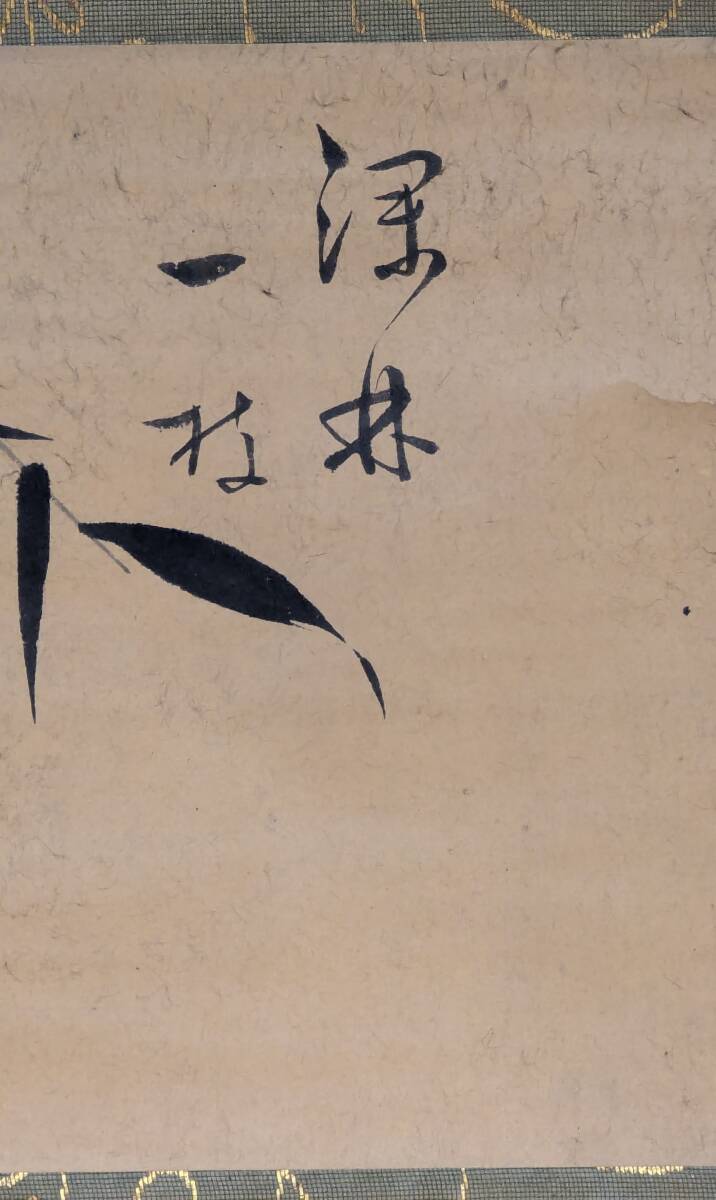 深林
一枝